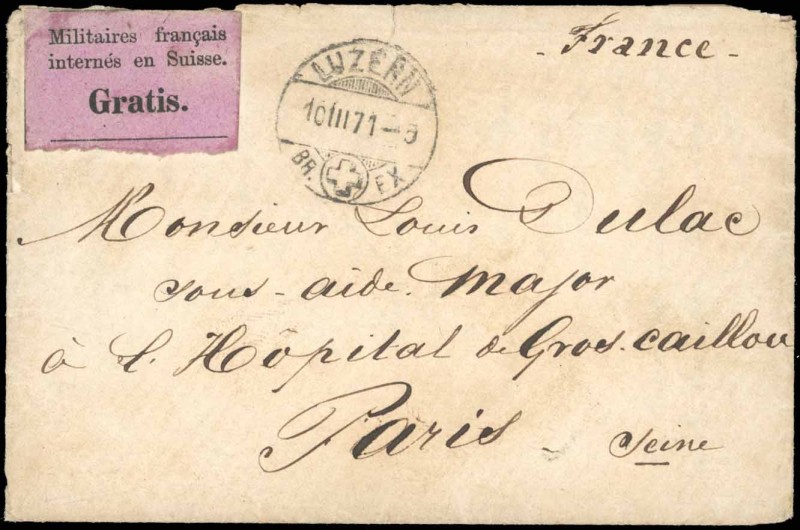 Militaires français
internés en Suisse.
Gratis.
- France -
LUZERN
10 III 71 - 9
BR. EX
Monsieur Louis Dulac
sous - aide. Major
à l. Hôpital de Gros. caillou
Paris - Seine